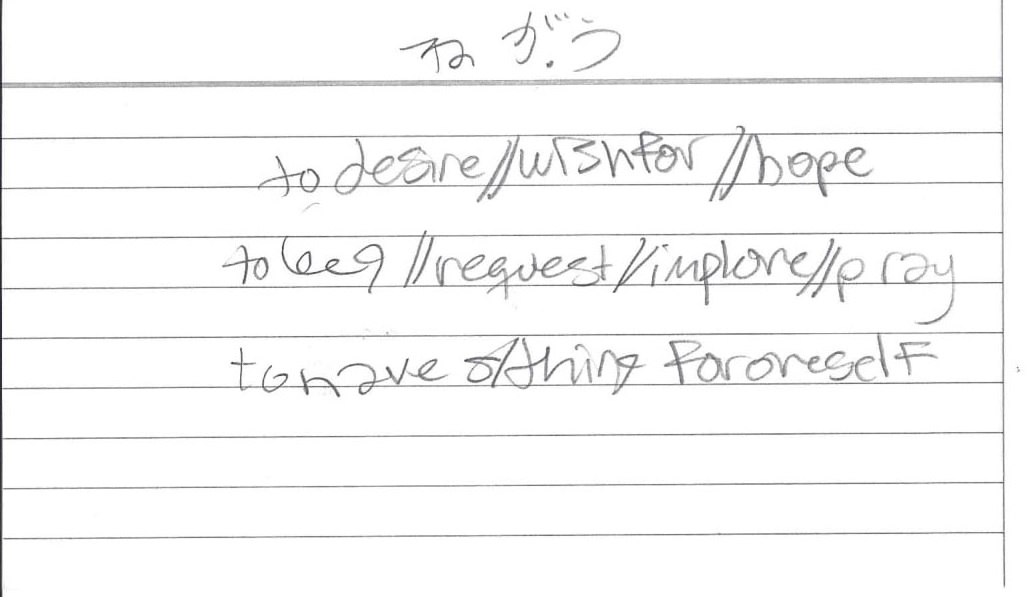 ねがう
to desire//wish for//hope
to beg//request//implore//pray
to have s/thing for oneself